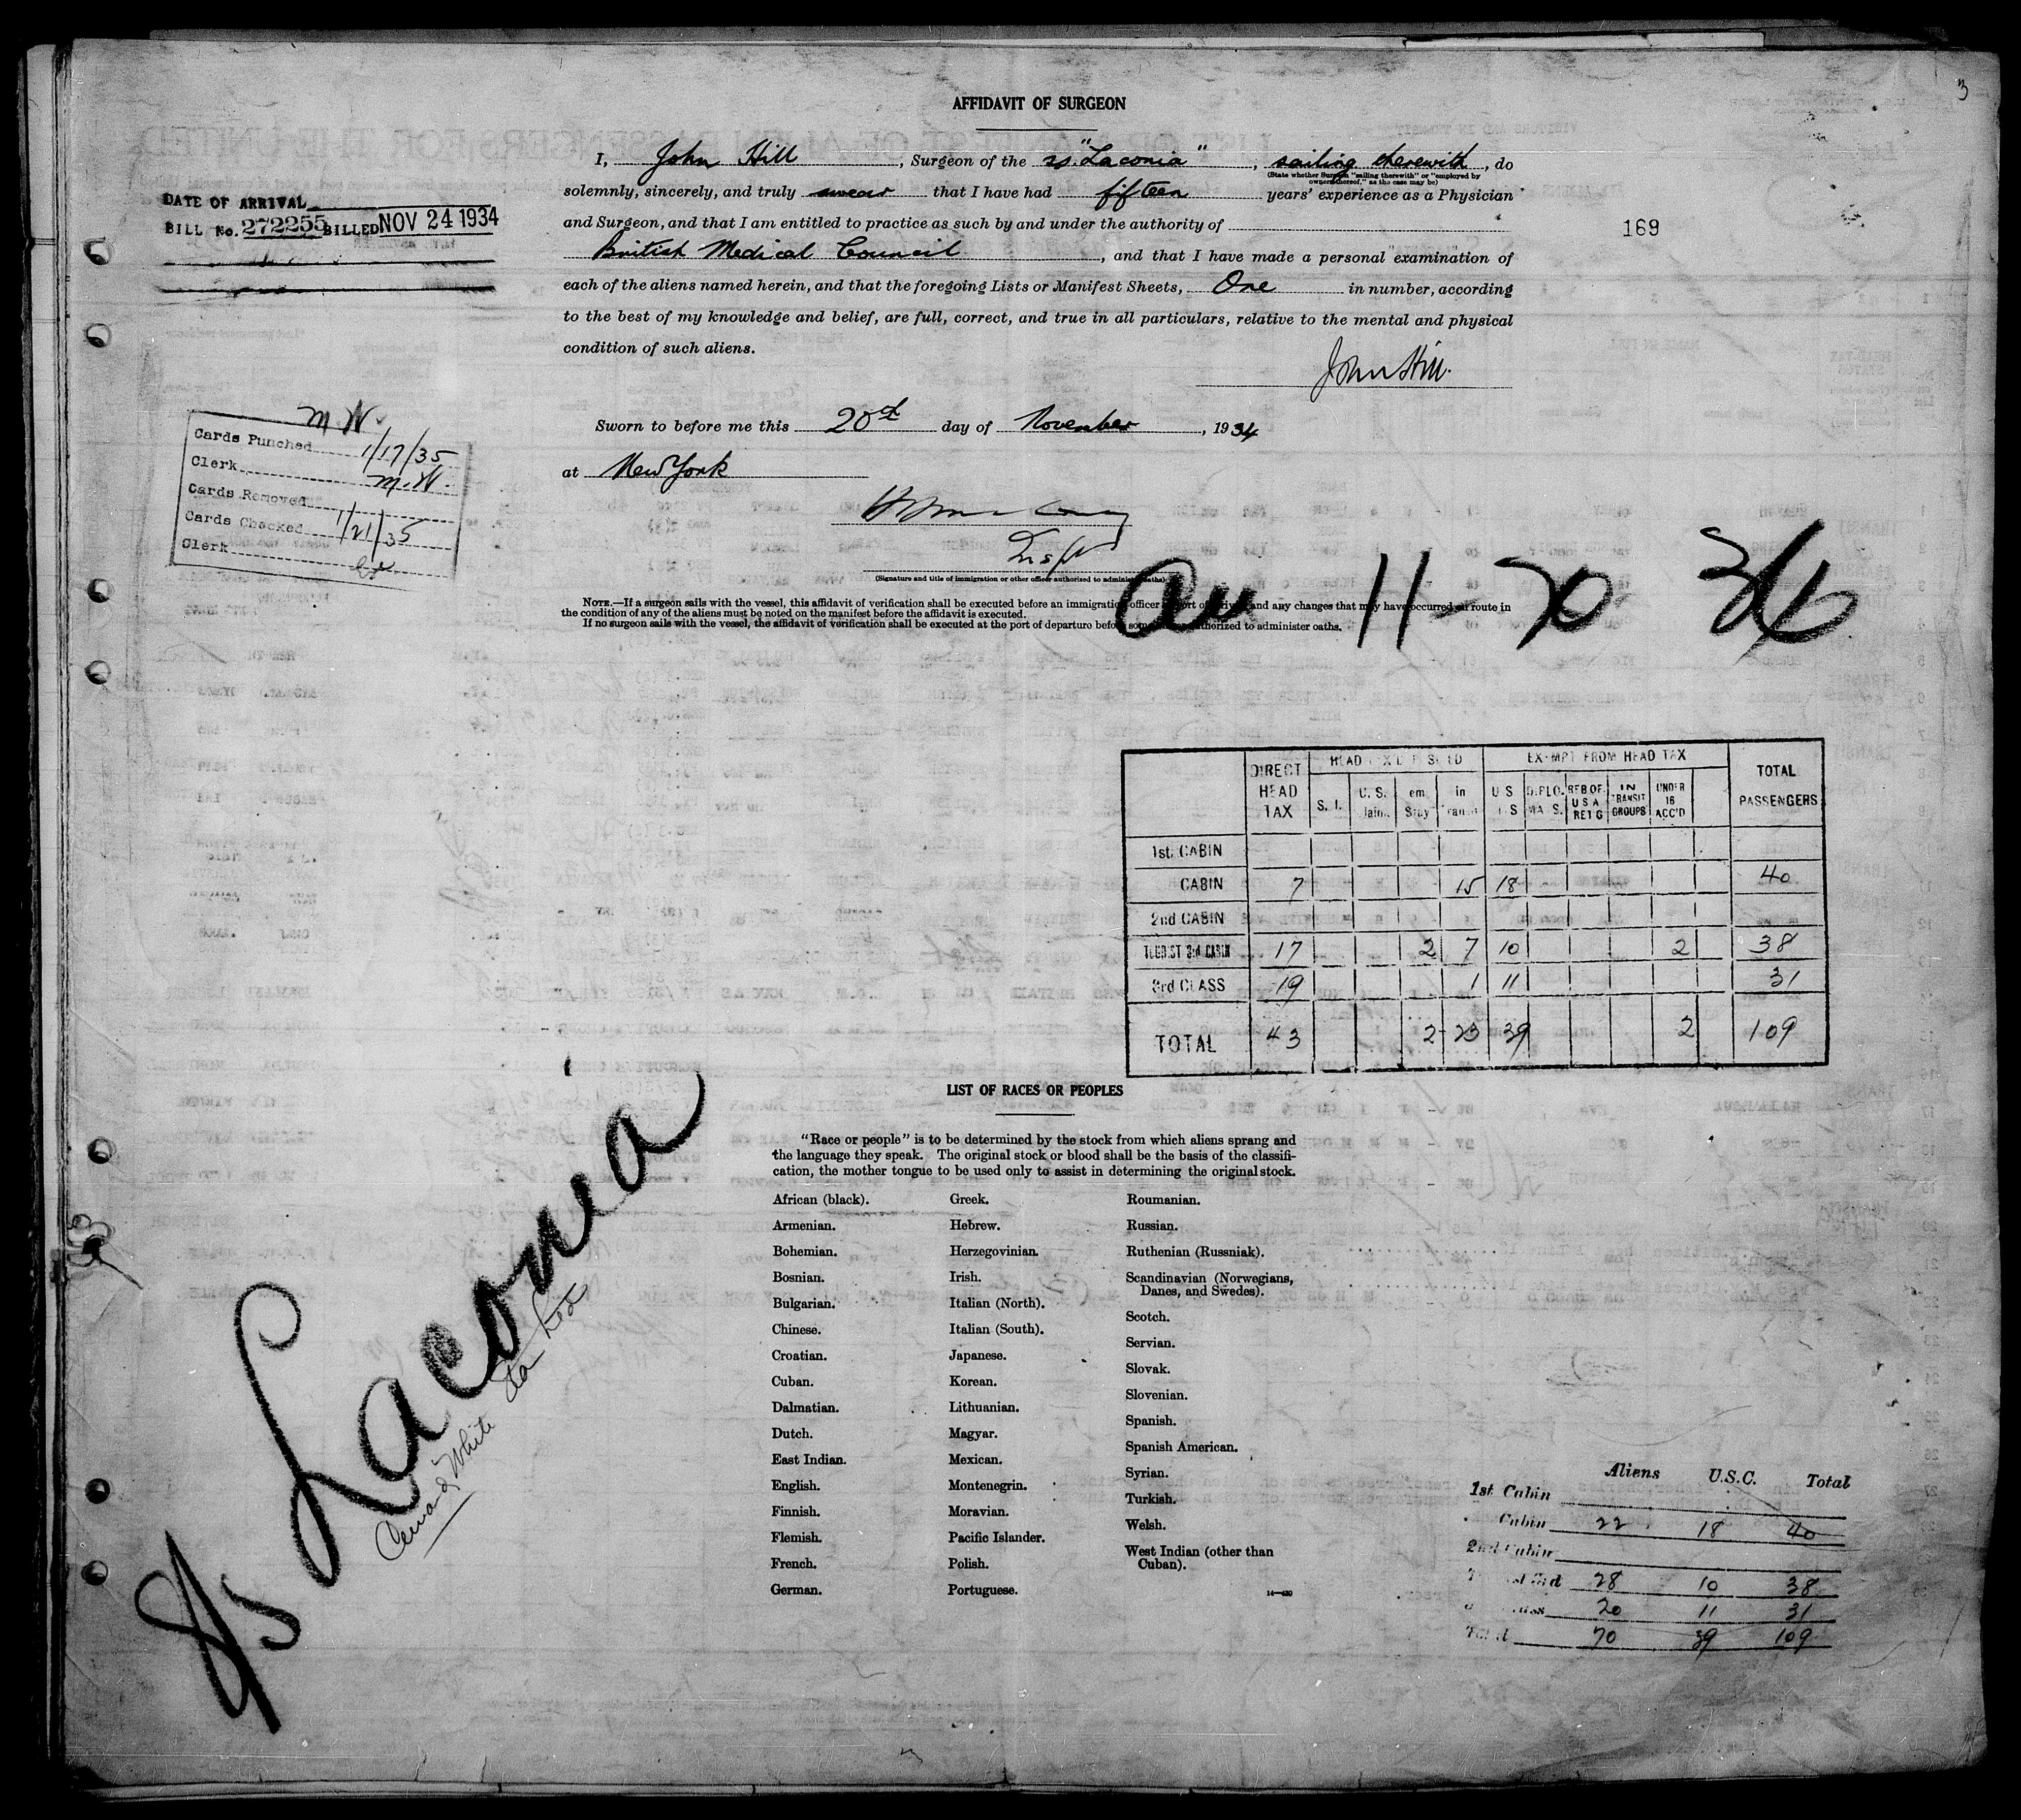 3
AFFIDAVIT OF SURGEON
I, John Hill, Surgeon of the ss. "Laconia", sailing therewith, do
(State whether Surgeon "sailing therewith" or "employed by
owners thereof," as the case may be)
solemnly, sincerely, and truly swear that I have had fifteen years' experience as a Physician
and Surgeon, and that I am entitled to practice as such by and under the authority of
British Medical Council, and that I have made a personal examination of
each of the aliens named herein, and that the foregoing Lists or Manifest Sheets, One in number, according
to the best of my knowledge and belief, are full, correct, and true in all particulars, relative to the mental and physical
condition of such aliens.
John Hill.
DATE OF ARRIVAL
BILL No. 272255 BILLED NOV 24 1934
169
Sworn to before me this 20th day of November, 1934
at New York
(Signature and title of immigration or other officer authorised to administer oaths)
M.W.
Cards Punched 1/17/35
Clerk M.W.
Cards Removed
Cards Checked 1/21/35
Clerk
NOTE.—If a surgeon sails with the vessel, this affidavit of verification shall be executed before an immigration officer port of and any changes that may have occurred en route in
the condition of any of the aliens must be noted on the manifest before the affidavit is executed.
If no surgeon sails with the vessel, the affidavit of verification shall be executed at the port of departure before authorized to administer oaths.
11-20
DIRECT HEAD TAX EXEMPT FROM HEAD TAX TOTAL PASSENGERS
S. I. U. S. em Stay in U S DIPLO. REB OF U S A RET G IN TRANSIT GROUPS UNDER 16 ACC'D
1st. CABIN
CABIN 7 15 18 40
2nd CABIN
TOURIST 3rd CABIN 17 2 7 10 2 38
3rd CLASS 19 1 11 31
TOTAL 43 2 23 39 2 109
LIST OF RACES OR PEOPLES
"Race or people" is to be determined by the stock from which aliens sprang and
the language they speak. The original stock or blood shall be the basis of the classifi-
cation, the mother tongue to be used only to assist in determining the original stock.
African (black).
Armenian.
Bohemian.
Bosnian.
Bulgarian.
Chinese.
Croatian.
Cuban.
Dalmatian.
Dutch.
East Indian.
English.
Finnish.
Flemish.
French.
German.
Greek.
Hebrew.
Herzegovinian.
Irish.
Italian (North).
Italian (South).
Japanese.
Korean.
Lithuanian.
Magyar.
Mexican.
Montenegrin.
Moravian.
Pacific Islander.
Polish.
Portuguese.
Roumanian.
Russian.
Ruthenian (Russniak).
Scandinavian (Norwegians,
Danes, and Swedes).
Scotch.
Servian.
Slovak.
Slovenian.
Spanish.
Spanish American.
Syrian.
Turkish.
Welsh.
West Indian (other than
Cuban).
S/S Laconia
White Star
Aliens U.S.C. Total
1st Cabin
Cabin 22 18 40
2nd Cabin
3rd 28 10 38
20 11 31
Total 70 39 109